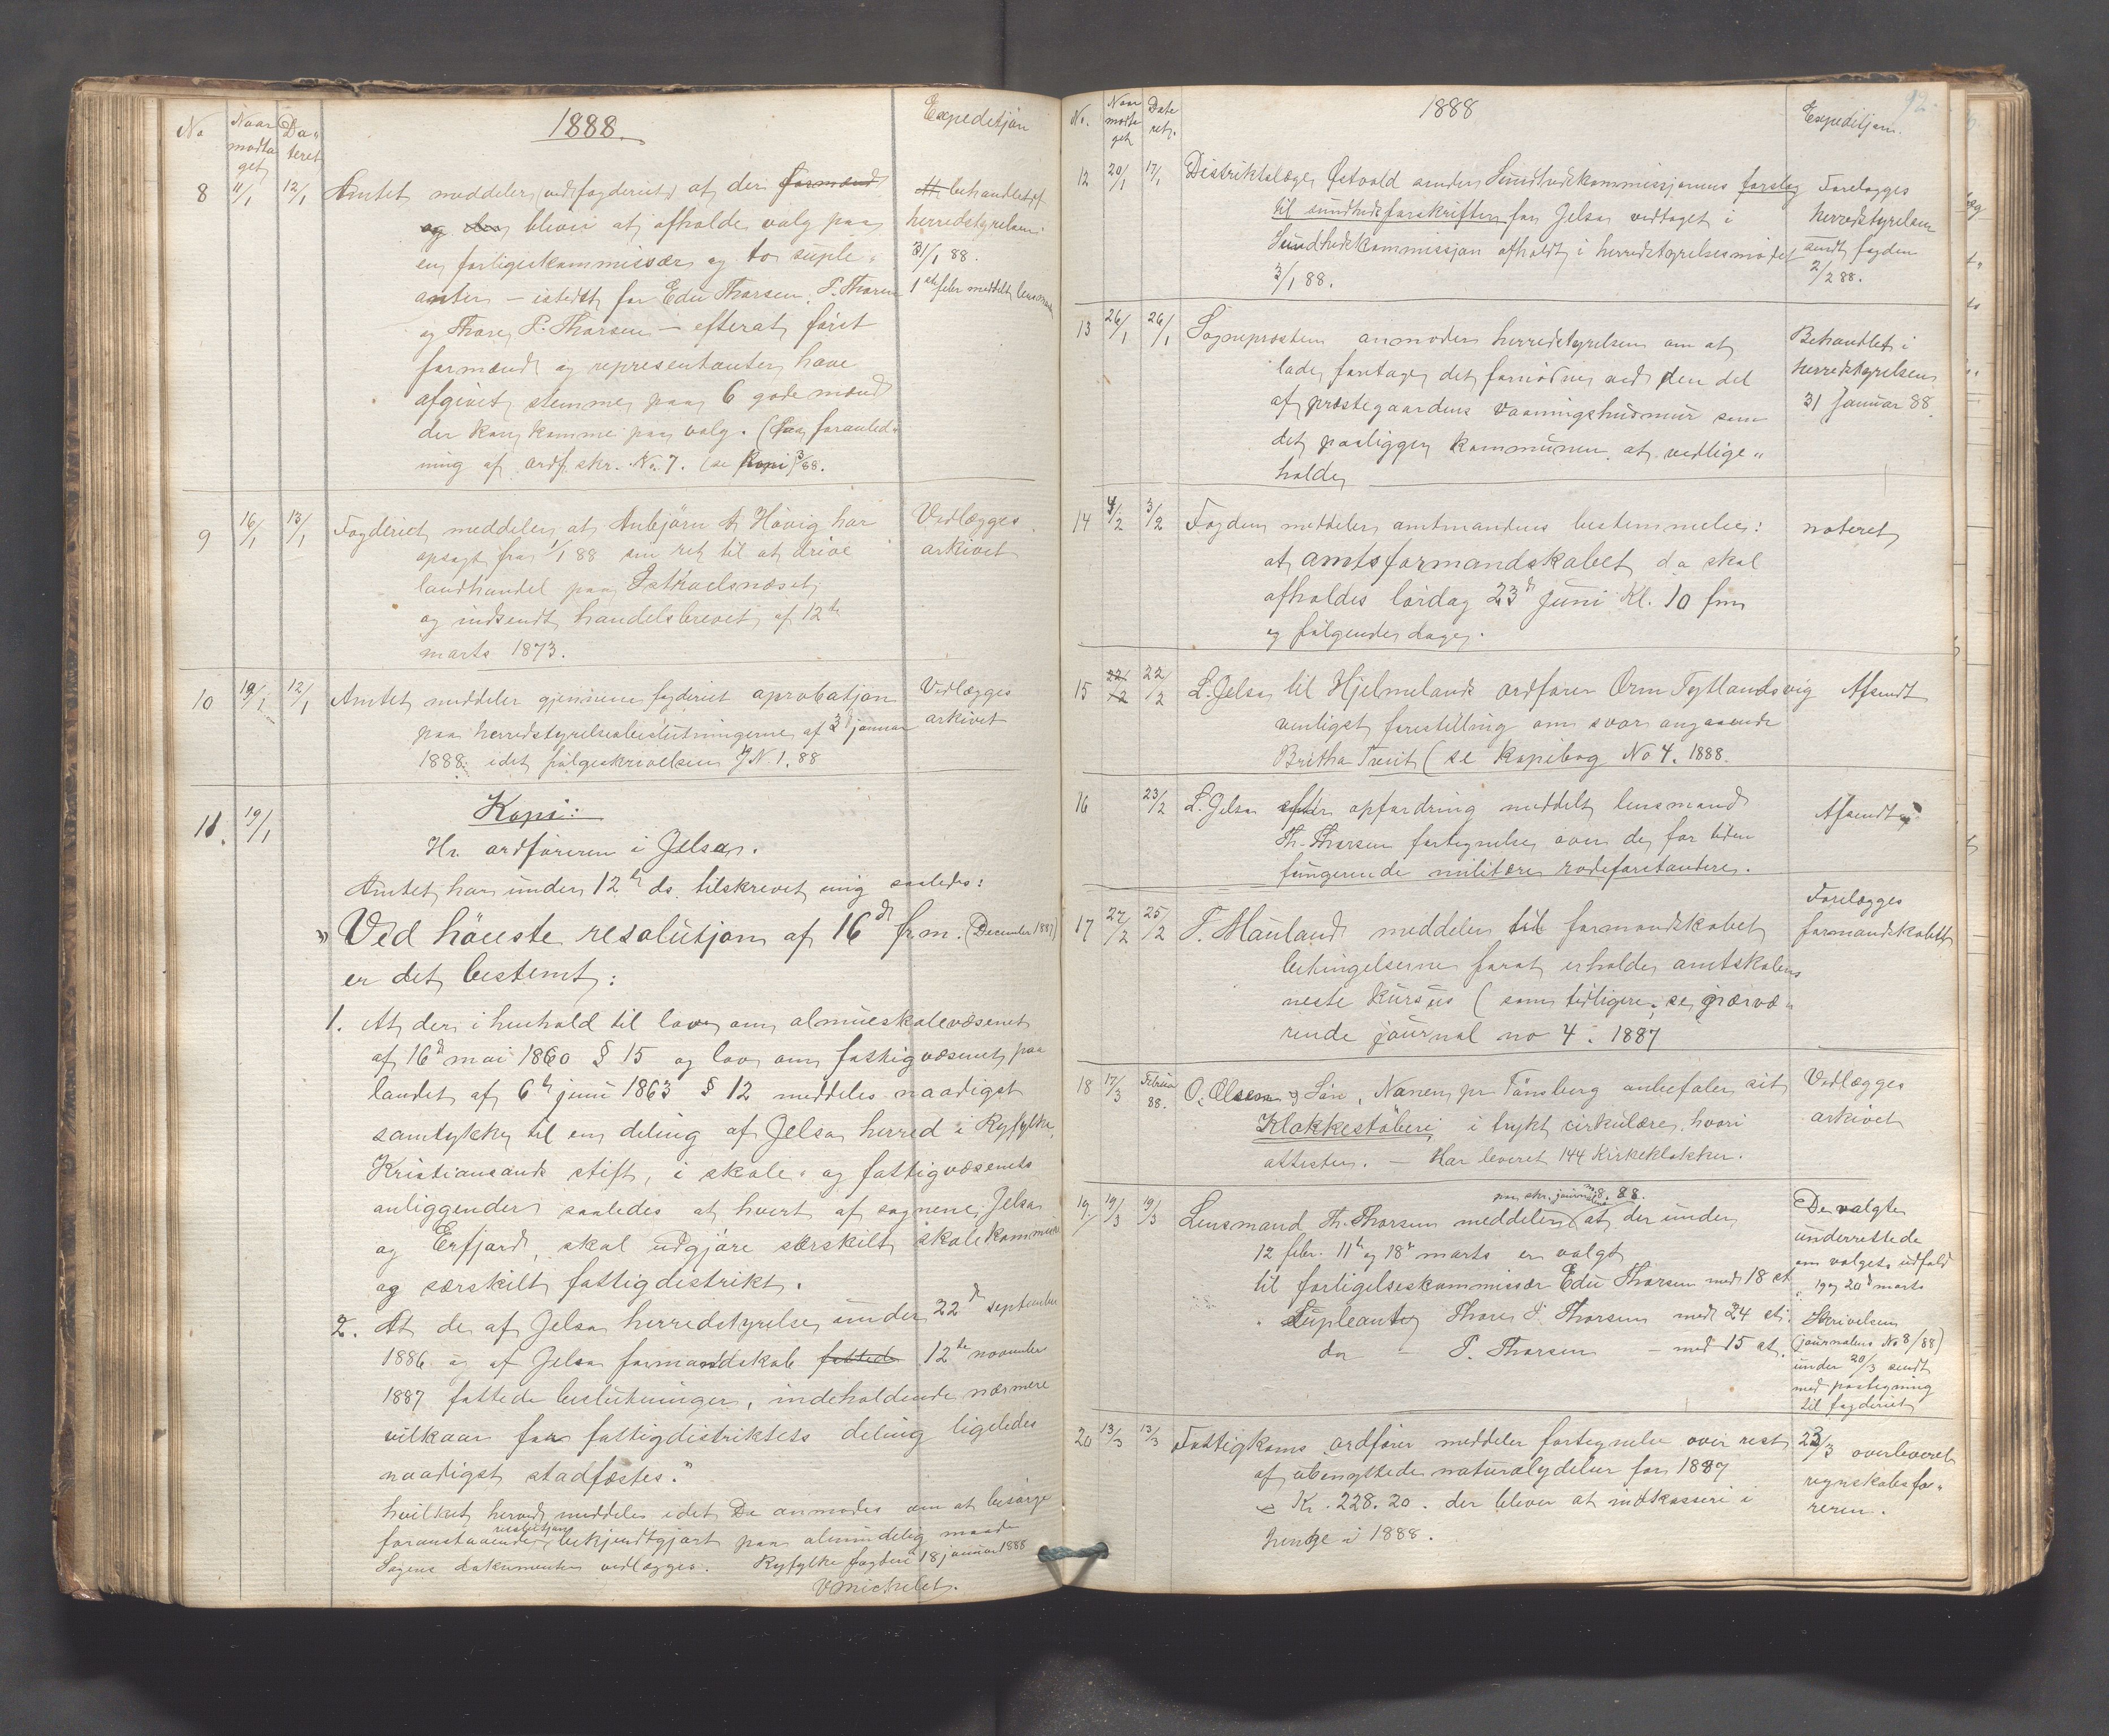 No Naar modta get Da- teret 1888. Expeditjon
8 11/1 12/1 Amtet meddeler (ved fogderiet) at der formænd
og bliver at afholde valg paa
en forligeskommissær og to suple-
anter – istedet for Edu Thorsen, P. Thorsen
og Thore P. Thorsen – efterat först
formænd og representanter have
afgivet stemme paa 6 gode mænd
der kan komme paa valg. (Paa foranled-
ning af ordf. skr. No 7. (se Kopi 3/88.
behandlet af
herredstyrelsen
31/1 88.
1ste febr meddelt lensmand
9 16/1 13/1 Fogderiet meddeler at Anbjörn A Hövig har
opsagt fra 1/1 88 sin ret til at drive
landhandel paa Istraelsnæset
og indsendt handelsbrevet af 12te
marts 1873.
Vedlægges
arkivet
10 19/1 12/1 Amtet meddeler gjennem fogderiet aprobatjon
paa herredstyrelsesbeslutningerne af 3d januar
1888. idet fölgeskrivelsen N. 1. 88
Vedlægges
arkivet
11. 19/1 Kopi:
Hr. ordföreren i Jelsa.
Amtet har under 12te ds. tilskrevet mig saaledes:
"Ved höieste resolutjon af 16de f.m. (December 1887)
er det bestemt:
1. At der i henhold til lov om almueskolevæsenet
af 16de mai 1860 § 15 og lov om fattigvæsenet paa
landet af 6te juni 1863 § 12 meddeles naadigst
samtykke til en deling af Jelsa herred i Ryfylke,
Kristiansands stift, i skole- og fattigvæsenets
anliggender saaledes at hvert af sognene, Jelsa
og Erfjord, skal udgjöre særskilt skolekommune
og særskilt fattigdistrikt.
2. At de af Jelsa herredstyrelse under 22de september
1886 og af Jelsa formandskab fattede 12te november
1887 fattede beslutninger, indeholdende nærmere
vilkaar for fattigdistriktets deling ligeledes
naadigst stadfæstes."
hvilket herved meddeles idet De anmodes om at besörge
foranstaaende resolutjon bekjendtgjort paa almindelig maade
Sagens dokumenter vedlægges. Ryfylke fogderi 18 januar 1888
V Michelet.
92.
No. Naar modta get Date ret. 1888 Expeditjon.
12 20/1 17/1 Distriktslæge Østvold sender Sundhedskommissjonens forslag
til sundhedsforskrifter for Jelsa vedtaget i
Sundhedskommissjon afholdt i herredstyrelsesmödet
3/1 88.
Forelægges
herredstyrelsen
sendt fogden
2/2 88.
13 26/1 26/1 Sogneprosten anmoder herredstyrelsen om at
lade foretage det fornödne ved den del
af præstegaardens vaaningshusmur som
det paaligger kommunen at vedlige-
holde
Behandlet i
herredstyrelsen
31 Januar 88.
14 4/2 3/2 Fogden meddeler amtmandens bestemmelse:
at amtsformandskabet d.a skal
afholdes lördag 23de juni Kl. 10 fm
og fölgende dage.
noteret
15 22/2 22/2 L. Jelsa til Hjelmelands ordförer Orm Tytlandsvig
venligst forestilling om svar angaaende
Britha Treit (se kopibog No 4. 1888.
Afsendt
16 23/2 L. Jelsa efter opfordring meddelt lensmand
Th. Thorsen fortegnelse over de for tiden
fungerende militære rodeforstandere.
Afsendt
17 27/2 25/2 T. Mauland meddeler til formandskabet
betingelserne forat erholde amtskolens
neste kursus (som tidligere se nærvæ-
rende journal no 4. 1887
Forelægges
formandskabet
18 17/3 Februar 88. O. Olsen & Sön, Nanen pr Tönsberg anbefaler sit
Klokkestöberi i trykt cirkulære, hvori
attester. – Har leveret 144 Kirkeklokker.
Vedlægges
arkivet
19 19/3 19/3 Lensmand Th. Thorsen meddeler paa skr. journal no 8. 88. at der under
12 febr. 11te og 18de marts er valgt
til forligelseskommissær Edu Thorsen med 18 st
Supleanter Thore P. Thorsen med 24 st.
do – P. Thorsen – med 15 st.
De valgte
underrettede
om valgets udfald
19 og 20de marts
Skrivelsen
(journalens No 8/88)
under 20/3 sendt
med paategning
til fogderiet
20 13/3 13/3 Fattigkoms ordförer meddeler fortegnelse over rest
af ubenyttede naturalydelser for 1887
Kr. 228.20. der bliver at indkassere i
penge i 1888.
23/3 overleveret
regnskabsfö-
reren.